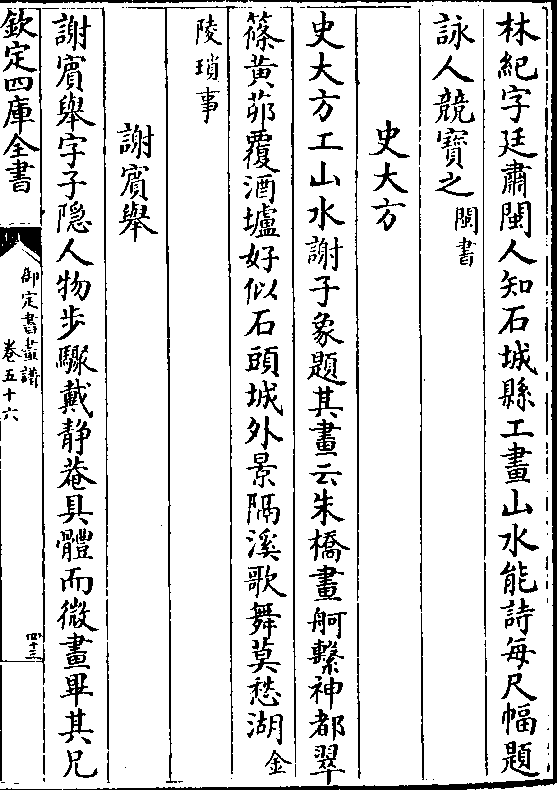 林紀字廷肅閩人知石城縣工畫山水能詩每尺幅題
詠人競寶之閩書
史大方
史大方工山水謝子象題其畫云朱橋畫舸繫神都翠
篠黄茆覆酒壚好似石頭城外景隔溪歌舞莫愁湖金
陵瑣事
謝賓舉
謝賓舉字子隠人物步驟戴静菴具體而微畫畢其兄
欽定四庫全書
御定書畫譜
卷五十六
四十三